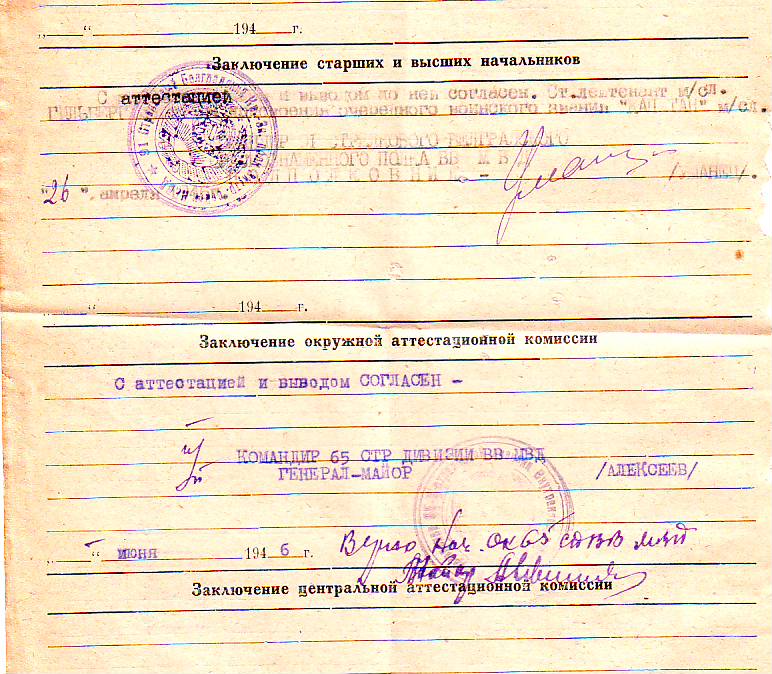 " " 194 г.
Заключение старших и высших начальников
С аттестацией и выводом по ней согласен. Ст.лейтенант м/сл.
очередного воинского звания "КАПИТАН" м/сл.
СТРЕЛКОВОГО БЕЛГРАДСКОГО
КРАСНОЗНАМЕННОГО ПОЛКА ВВ МВД
ПОДПОЛКОВНИК -
"26", апреля
" " 194 г.
Заключение окружной аттестационной комиссии
С аттестацией и выводом СОГЛАСЕН -
п/п
КОМАНДИР 65 СТР ДИВИЗИИ ВВ МВД
ГЕНЕРАЛ-МАЙОР /АЛЕКСЕЕВ/
" " июня 1946 г.
Верно Нач. ОК 65 сд ВВ МВД
Майор
Заключение центральной аттестационной комиссии